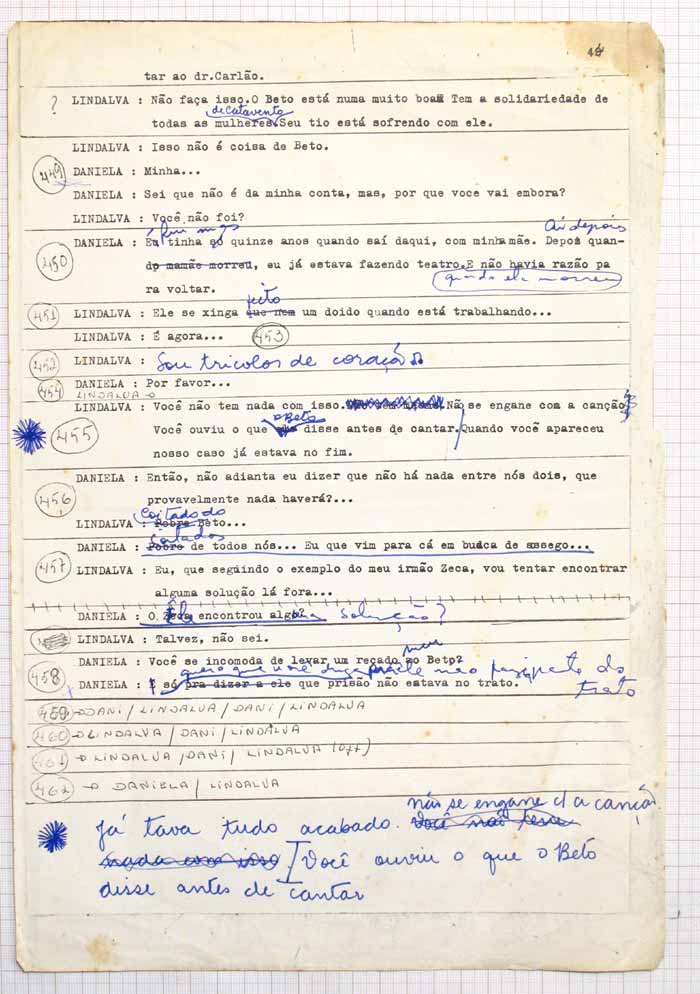 tar ao dr.Carlão.
? LINDALVA : Não faça isso.O Beto está numa muito boa Tem a solidariedade de
de Catavento
todas as mulheres.Seu tio está sofrendo com ele.
LINDALVA : Isso não é coisa de Beto.
449 DANIELA : Minha...
DANIELA : Sei que não é da minha conta, mas, por que voce vai embora?
LINDALVA : Você não foi?
Aí depois
450 DANIELA : Eu tinha só quinze anos quando saí daqui, com minha mãe. Depois quan-
do mamãe morreu, eu já estava fazendo teatro.E não havia razão pa
quando ela morreu
ra voltar.
jeito
451 LINDALVA : Ele se xinga que nem um doido quando está trabalhando...
LINDALVA : E agora... 453
452 LINDALVA : Sou tricolor de coração
454 DANIELA : Por favor...
LINDALVA
LINDALVA : Você não tem nada com isso. Não se engane com a canção
Beto
455 Você ouviu o que disse antes de cantar.Quando você apareceu
nosso caso já estava no fim.
DANIELA : Então, não adianta eu dizer que não há nada entre nós dois, que
456 provavelmente nada haverá?...
Coitado do
LINDALVA : Pobre Beto...
coitados
DANIELA : Pobre de todos nós... Eu que vim para cá em busca de sossego...
457 LINDALVA : Eu, que seguindo o exemplo do meu irmão Zeca, vou tentar encontrar
alguma solução lá fora...
DANIELA : O Zeca encontrou alguma solução?
LINDALVA : Talvez, não sei.
meu
458 DANIELA : Você se incomoda de levar um recado ao Beto?
DANIELA : É só pra dizer a ele que prisão não estava no trato.
trato
459 DANI / LINDALVA / DANI / LINDALVA
460 LINDALVA / DANI / LINDALVA
461 LINDALVA / DANI / LINDALVA (OFF)
462 DANIELA / LINDALVA
não se engane c/ a canção
Já tava tudo acabado. Você não teve
nada com isso Você ouviu o que o Beto
disse antes de cantar